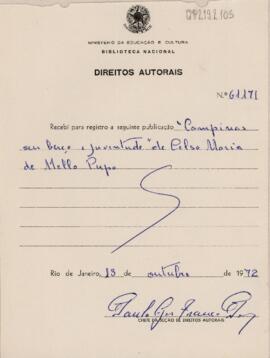 CP219.2.105
MINISTÉRIO DA EDUCAÇÃO E CULTURA
BIBLIOTECA NACIONAL
DIREITOS AUTORAIS
N.º 61171
Recebi para registro a seguinte publicação "Campinas
seu berço e juventude" de Celso Maria
de Mello Pupo
Rio de Janeiro, 13 de outubro de 1972
CHEFE DA SEÇÃO DE DIREITOS AUTORAIS